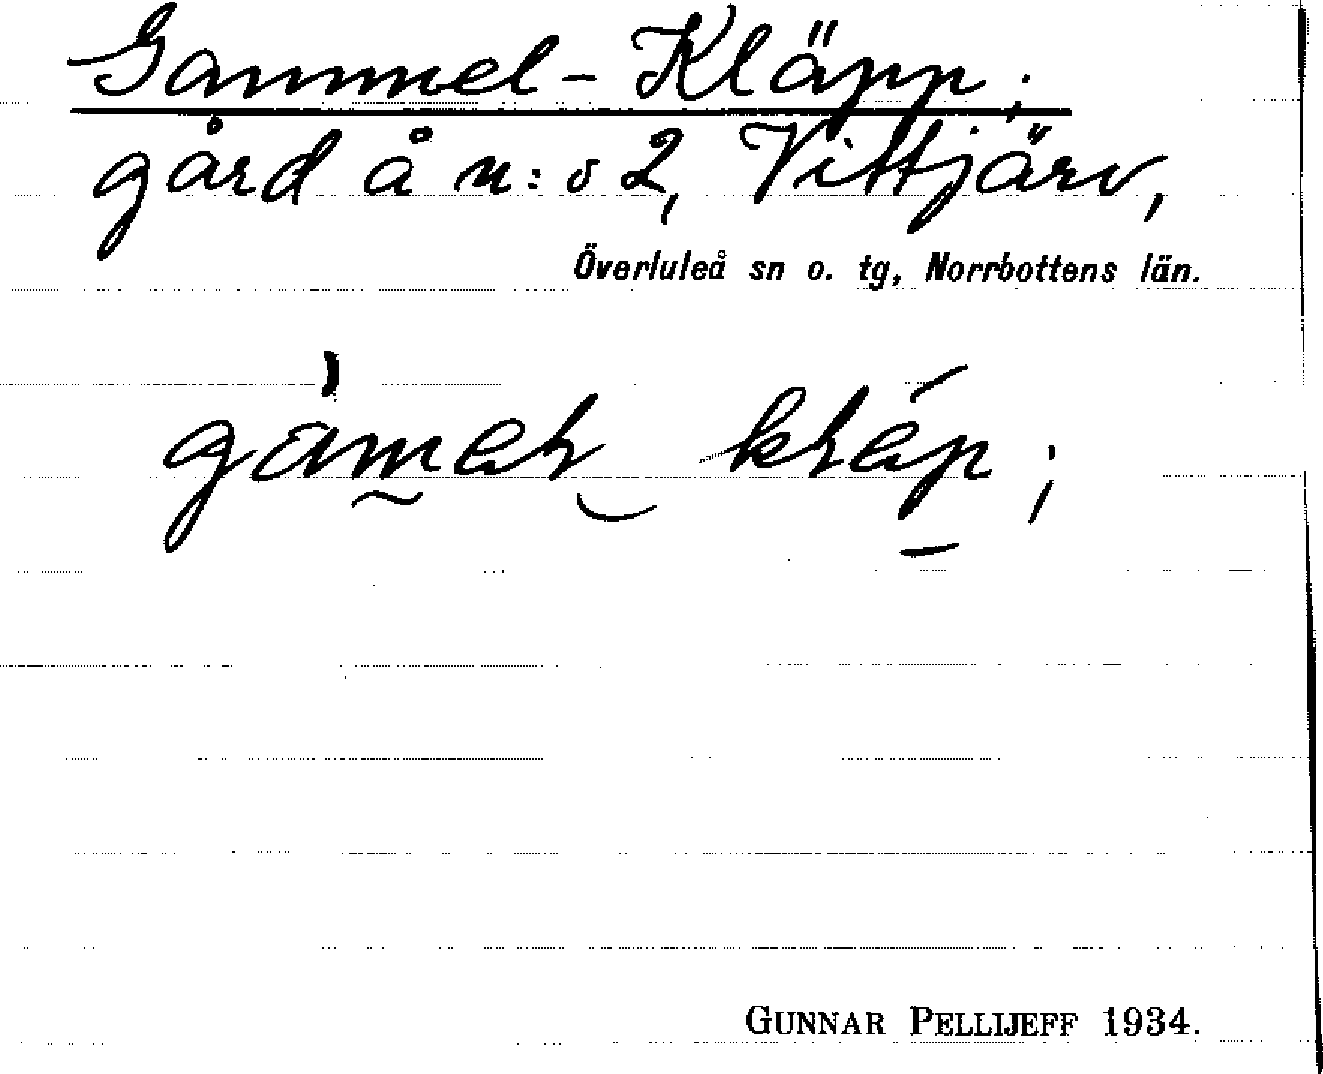 Gammel-Kläpp;
gård å n:o 2, Vittjärv,
Överluleå sn o. tg, Norrbottens län.
GUNNAR PELLIJEFF 1934.